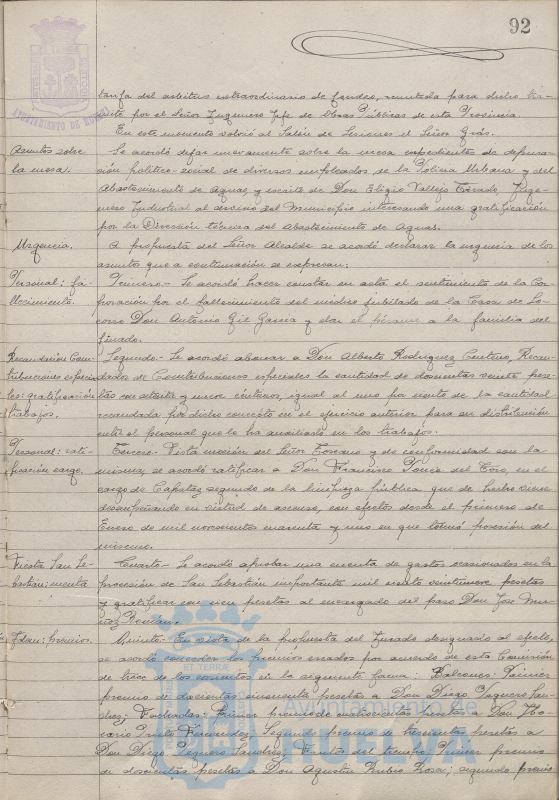 92
AYUNTAMIENTO DE HUELVA
tarifa del arbitrio extraordinario de fondeo, remitida para dicho trá-
mite por el Señor Ingeniero Jefe de Obras Públicas de esta Provincia.
En este momento volvió al Salón de Sesiones el Señor Grás.
Asuntos sobre
la mesa.
Se acordó dejar nuevamente sobre la mesa expedientes de depura-
ción político-social de diversos empleados de la Policía Urbana y del
Abastecimiento de Aguas y escrito de Don Eligio Vallejo Tirado, Inge-
niero Industrial al servicio del Municipio interesando una gratificación
por la Dirección técnica del Abastecimiento de Aguas.
Urgencia.
A propuesta del Señor Alcalde se acordó declarar la urgencia de los
asuntos que a continuación se expresan:
Personal: fa-
llecimiento.
Primero.- Se acordó hacer constar en acta el sentimiento de la Cor-
poración por el fallecimiento del médico jubilado de la Casa de So-
corro Don Antonio Gil García y dar el pésame a la familia del
finado.
Recaudación Con-
tribuciones especia-
les: gratificación
trabajos.
Segundo.- Se acordó abonar a Don Alberto Rodríguez Centeno, Recau-
dador de Contribuciones especiales la cantidad de doscientas veinte pese-
tas con y céntimos, igual al uno por ciento de la cantidad
recaudada por dicho concepto en el ejercicio anterior para su distribución
entre el personal que le ha auxiliado en los trabajos.
Personal: rati-
ficación cargo.
Tercero.- Vista moción del Señor Toscano y de conformidad con la
misma, se acordó ratificar a Don Francisco Ponce del Toro, en el
cargo de Capataz segundo de la limpieza pública que de hecho viene
desempeñando en virtud de ascenso, con efectos desde el primero de
Enero de mil novecientos cuarenta y uno en que tomó posesión del
mismo.
Fiesta San Se-
bastián: cuenta
Cuarto.- Se acordó aprobar una cuenta de gastos ocasionados en la
procesión de San Sebastián importante mil ciento veintinueve pesetas
y gratificar con cien pesetas al encargado del paso Don José Mu-
ñoz Román.
Idem: Premios.
Quinto.- En vista de la propuesta del Jurado designado al efecto,
se acordó conceder los premios creados por acuerdo de esta Comisión
de trece de los corrientes en la siguiente forma: Balcones: Primer
premio de doscientas cincuenta pesetas a Don Diego Vaquero
Fachadas: Primer premio de cuatrocientas pesetas a Don
Prieto Fernández; Segundo premio de trescientas pesetas a
Don Diego Vaquero Frutos del tiempo: Primer premio
de doscientas pesetas a Don Agustín Rubio Rosa; segundo premio
Ayuntamiento de
HUELVA